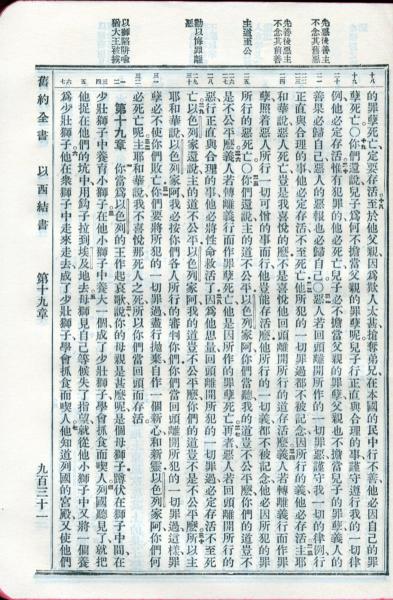 先惡後善主
不念其舊惡
先善後惡主
不念其舊善
主道至公
勸以悔罪離
惡
以獅陷阱喻
猶大王被擄
的罪孽死亡定要存活至於他父親因爲欺人太甚搶奪弟兄在本國的民中行不善他必因自己的罪
孽死亡○你們還說兒子爲何不擔當父親的罪孽呢兒子行正直與合理的事謹守遵行我的一切律
例他必定存活惟有犯罪的他必死亡兒子必不擔當父親的罪孽父親也不擔當兒子的罪孽義人的
善果必歸自己惡人的惡報也必歸自己○惡人若回頭離開所作的一切罪惡謹守我一切的律例行
正直與合理的事他必定存活不至死亡他所犯的一切罪過都不被記念因所行的義他必存活主耶
和華說惡人死亡豈是我喜悅的麽不是喜悅他回頭離開所行的道存活麽義人若轉離義行而作罪
孽照着惡人所行一切可憎的事而行他豈能存活麽他所行的一切義都不被記念他必因所犯的罪
所行的惡死亡○你們還說主的道不公平以色列家阿你們當聽我的道豈不公平麽你們的道豈不
是不公平麽義人若轉離義行而作罪孽死亡他是因所作的罪孽死亡再者惡人若回頭離開所行的
惡行正直與合理的事他必將性命救活了因爲他思量回頭離開所犯的一切罪過必定存活不至死
亡以色列家還說主的道不公平以色列家阿我的道豈不公平麽你們的道豈不是不公平麽所以主
耶和華說以色列家阿我必按你們各人所行的審判你們你們當回頭離開所犯的一切罪過這樣罪
孽必不使你們敗亡你們要將所犯的一切罪過盡行拋棄自作一個新心和新靈以色列家阿你們何
必死亡呢主耶和華說我不喜悅那死人之死所以你們當回頭而存活
第十九章 你當爲以色列的王作起哀歌說你的母親是甚麽呢是個母獅子蹲伏在獅子中間在
少壯獅子中養育小獅子在他小獅子中養大一個成了少壯獅子學會抓食而喫人列國聽見了就把
他捉在他們的坑中用鉤子拉到埃及地去母獅見自己等候失了指望就從他小獅子中又將一個養
爲少壯獅子他在衆獅子中走來走去成了少壯獅子學會抓食而喫人他知道列國的宮殿又使他們
舊約全書 以西結書 第十九章 九百三十一